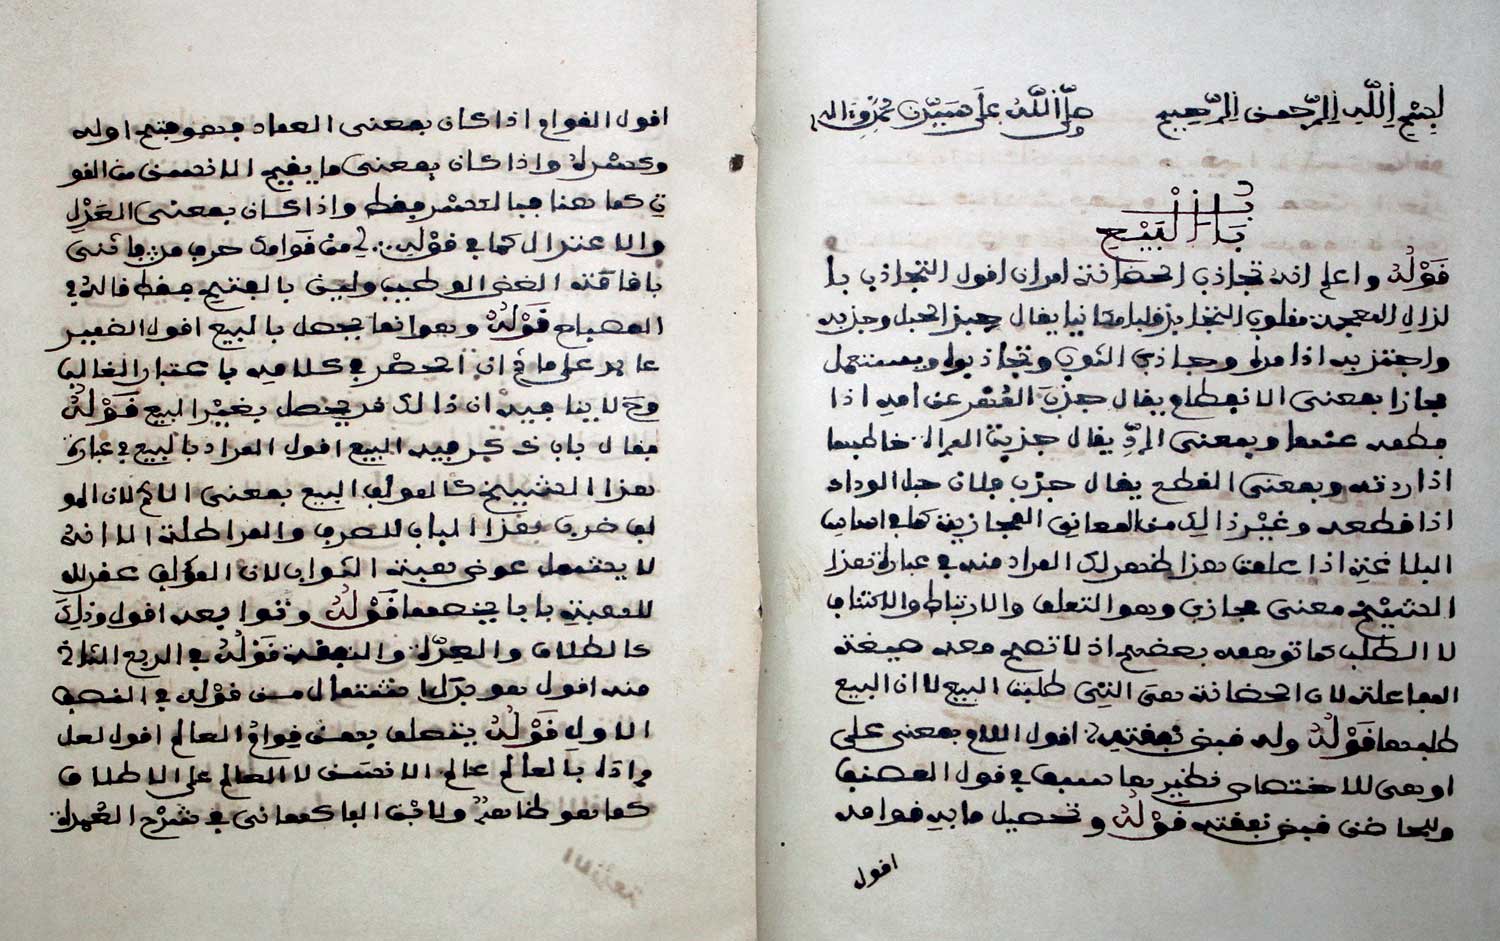 بسم الله الرحمن الرحيم صلى الله على سيدنا محمد وءاله
باب البيع
قوله واعلم انه تجاذب الحضانة امران اقول التجاذب با
لذال المعجمة مقلوب التجابذ قلبا مكانيا يقال جبذ الحبل وجذبه
واجتذبه اذا مده وجاذب الثوب وتجاذبوه ويستعمل
مجازا بمعنى الانقطاع يقال جذب المهر عن امه اذا
فطمه عنها وبمعنى الرد يقال جذبت المرأة خاطبها
اذا ردته وبمعنى القطع يقال جذب فلان حبل الوداد
اذا قطعه وغير ذالك من المعاني المجازية كما في اساس
البلاغة اذا علمت هذا ظهر لك المراد منه في عبارة هذا
الشيخ معنى مجازي وهو التعلق والارتباط والاكتناف
لا الطلب كما توهمه بعضهم اذ لا تصح معه صيغة
المفاعلة لان الحضانة هي التي طلبت البيع لا ان البيع
طلبها قوله وله قبض نفقته اقول اللام بمعنى على
او هي للاختصاص نظير ما سبق في قول المصنف
وللحاضن قبض نفقته قوله وتحصيل ما به قوامه
اقول
اقول القوام اذا كان بمعنى العماد فهو بفتح اوله
وكسره واذا كان بمعنى ما يقيم الانسان من القو
ت كما هنا فبالكسر فقط واذا كان بمعنى العدل
والاعتدال كما في قوله من قوامك
بالفتح فقط قاله في
المصباح قوله وهو انما يحصل بالبيع اقول الضمير
عايد على ما ان الحصر في كلامه باعتبار الغالب
وح لا ينافيه ان ذالك قد يحصل بغير البيع قوله
فقال باب ذكر فيه البيع اقول المراد بالبيع في عبارة
هذا الشيخ كالمؤلف البيع بمعنى الاعم لان المو
لف ضرب هذا الباب للصرف والمراطلة الا انه
لا يشمل عوض هبة الثواب لان المؤلف عقد لله
للهبة بابا يخصها قوله وتوابعه اقول وذلك
كالطلاق والعدة والنفقة قوله في الربع الثاني
منه اقول هو بدل اشتمال من قوله في النصف
الاول قوله يتعلق به قوام العالم اقول لعل
مراده بالعالم عالم الانسان لا العالم على الاطلاق
كما هو ظاهر ولابن الفاكهاني في شرح العمدة